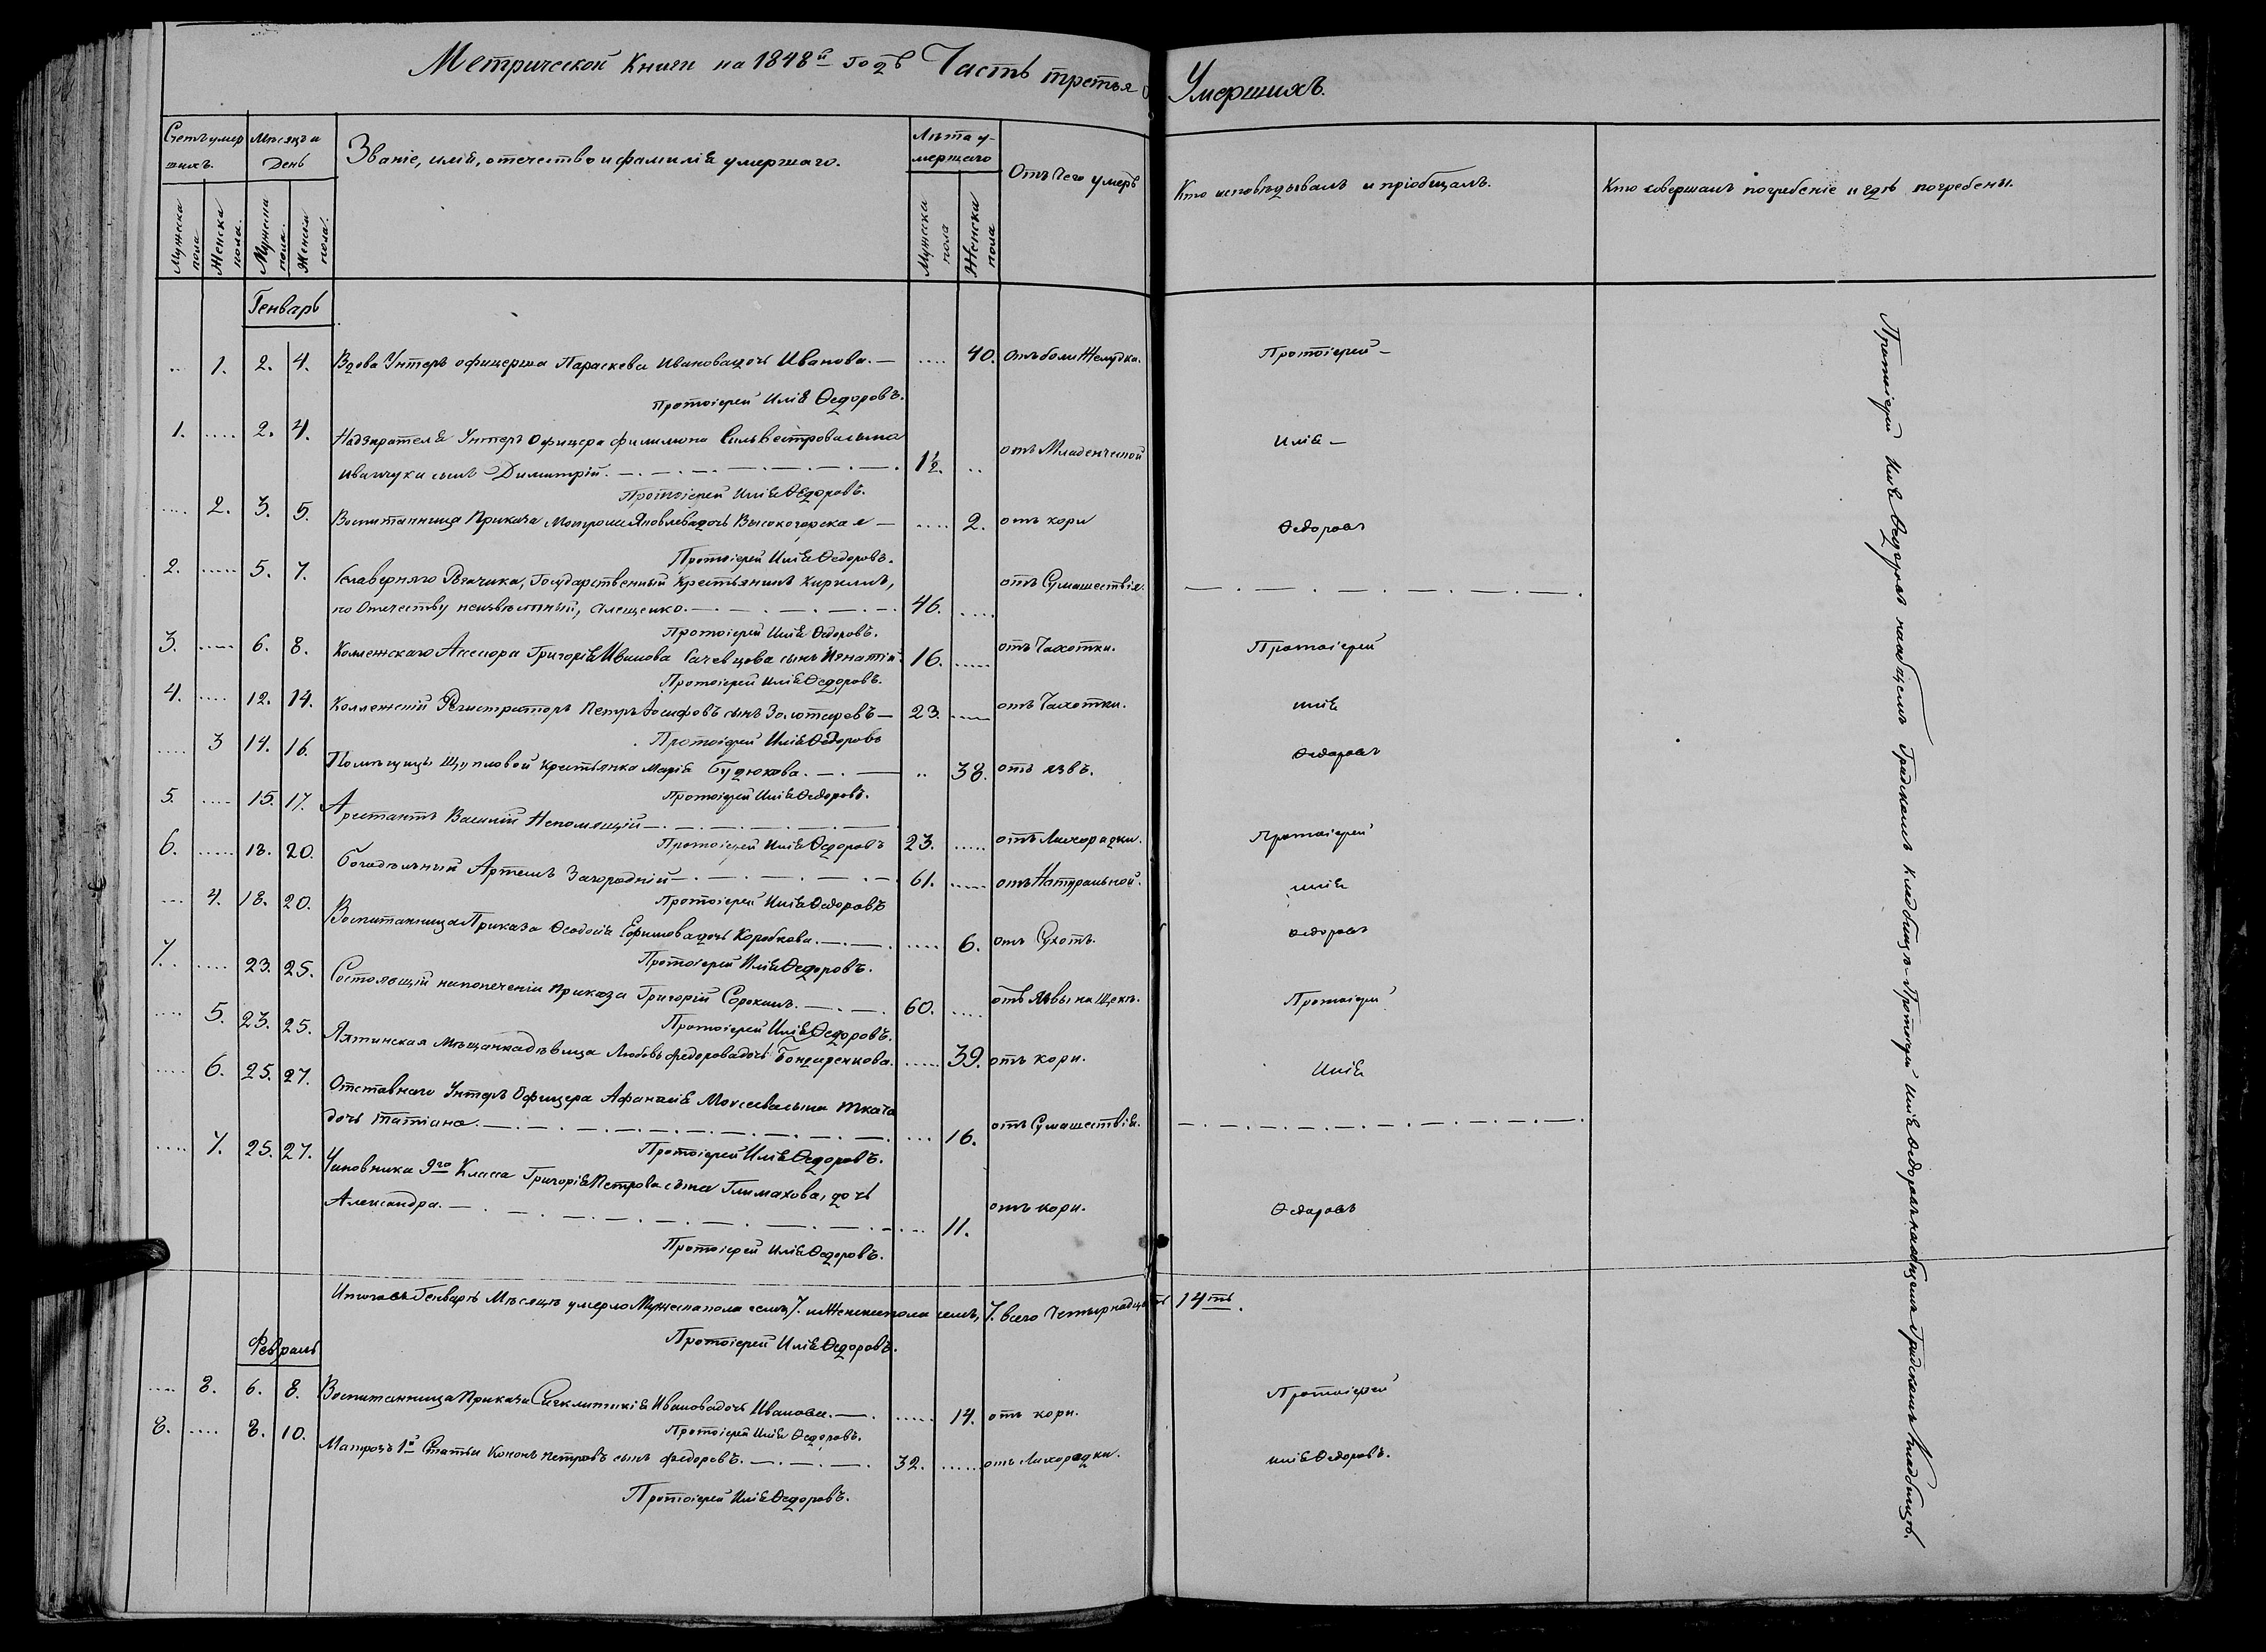 Метрической Книги на 1848й годъ Часть третья о Умершихъ.
Счетъ умер
шихъ.
Мѣсяцъ и
День
Званіе, имя, отечество и фамилія умершаго.
Лѣта у-
мершаго
Отъ чего умеръ
Кто исповѣдывалъ и пріобщалъ.
Кто совершалъ погребеніе и гдѣ погребены.
Мужеска пола
Женска пола.
Мужеска пола.
Женска пола.
Мужеска пола
Женска пола
Генварь
.... 1. 2. 4. Вдова Унтеръ офицерша Параскева Ивановадочь Иванова. — .... 40. отъ боли Желудка. Протоіерей —
Протоіерей Илія Ѳедоровъ.
1. .... 2. 4. Надзирателя Унтеръ Офицера Филимона Сильвестровасына
Иванчука сынъ Димитрій. 1½. .. отъ Младенческой Илія —
Протоіерей Илія Ѳедоровъ.
.... 2. 3. 5. Воспитанница Приказа Яковлевадочь Высокогорская — .... 2. отъ кори Ѳедоровъ
Протоіерей Илія Ѳедоровъ.
2. .... 5. 7. Рогачика, Государственный Крестьянинъ Кириллъ,
по Отечеству неизвѣстный, Алещенко. 46. .... отъ Сумашествія.
Протоіерей Илія Ѳедоровъ.
3. .... 6. 8. Коллежскаго Ассесора Григорія Иванова сынъ Игнатій. 16. .... отъ Чахотки. Протоіерей
Протоіерей Илія Ѳедоровъ.
4. .... 12. 14. Коллежскій Регистраторъ Петръ Іосифовъ сынъ Золотаревъ — 23. .... отъ Чахотки. Илія
Протоіерей Илія Ѳедоровъ
.... 3 14. 16. Помѣщицы Крестьянка Марія Будюкова. .. 38. отъ язвъ. Ѳедоровъ
Протоіерей Илія Ѳедоровъ.
5. .... 15. 17. Арестантъ Василій Непомнящій — 23. .... отъ Лихорадки. Протоіерей
Протоіерей Илія Ѳедоровъ
6. .... 18. 20. Богадѣльный Артемъ Загородній — 61. .... отъ Натуральной. Илія
Протоіерей Илія Ѳедоровъ
.... 4. 18. 20. Воспитанница Приказа Ѳеодосія Ефимовадочь Коробкова. .... 6. отъ Сухотъ. Ѳедоровъ
Протоіерей Илія Ѳедоровъ.
7. .... 23. 25. Состоявшій на попеченіи Приказа Григорій Сорокинъ. 60. .... отъ Язвы на Щекѣ. Протоіерей
Протоіерей Илія Ѳедоровъ.
.... 5. 23. 25. Ялтинская Мѣщанка дѣвица Любовь Федоровадочь Бондаренкова. .... 39. отъ кори. Илія
.... 6. 25. 27. Отставнаго Унтеръ Офицера Афанасія Моисеевасына Ткача
дочь Татіана. .... 16. отъ Сумашествія.
Протоіерей Илія Ѳедоровъ.
.... 7. 25. 27. Чиновника 9го Класса Григорія Петрова сына Глимахова, дочь
Александра. .... 11. отъ кори. Ѳедоровъ
Протоіерей Илія Ѳедоровъ.
Итого въ Генварѣ Мѣсяцѣ умерло Мужеска пола семь 7. и Женска пола семь, 7. всего Четырнадцать 14ть.
Протоіерей Илія Ѳедоровъ.
Февраль
.... 8. 6. 8. Воспитанница Приказа Синклитикія Ивановадочь Иванова. .... 14. отъ кори. Протоіерей
Протоіерей Илія Ѳедоровъ.
8. .... 8. 10. Матрозъ 1й Статьи Кононъ Петровъ сынъ Федоровъ. 32. .... отъ Лихорадки. Илія Ѳедоровъ.
Протоіерей Илія Ѳедоровъ.
Протоіерей Илія Ѳедоровъ на общемъ Градскомъ Кладбищѣ. Протоіерей Илія Ѳедоровъ на общемъ Градскомъ Кладбищѣ.